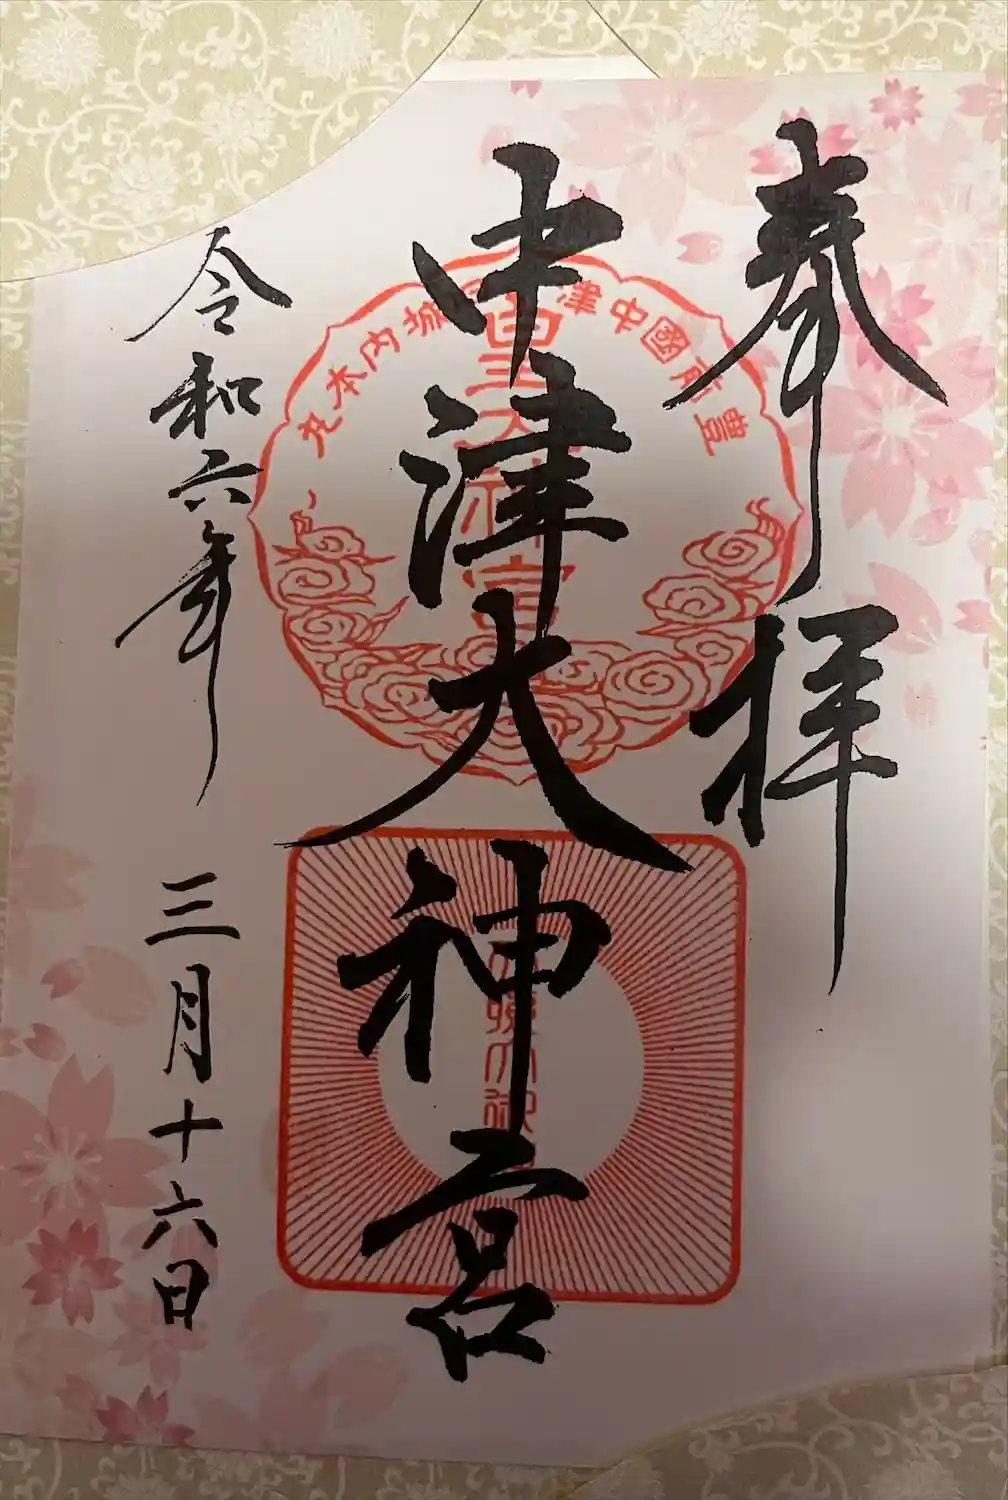 奉拝
中津大神宮
令和六年三月十六日
豊前國中津城内本丸
皇大神宮